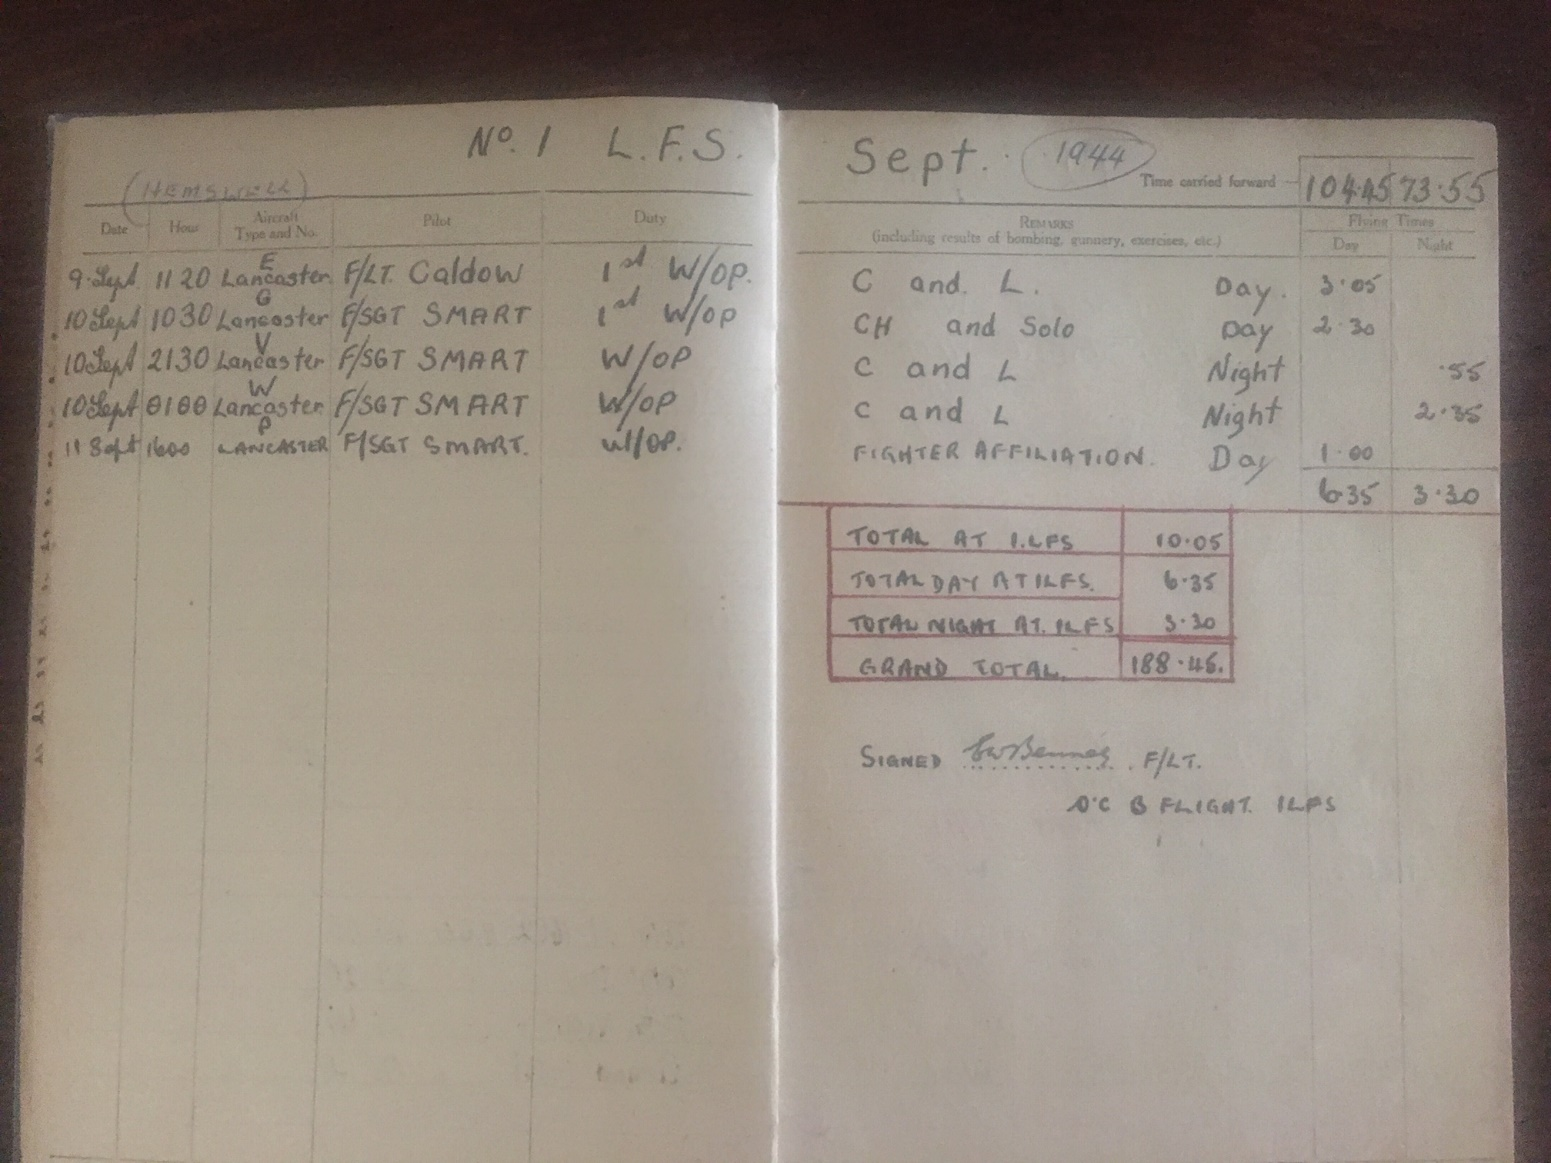 No. 1 L.F.S.
(HEMSWELL)
Date Hour Aircraft Type and No. Pilot Duty
9 Sept 1120 Lancaster E F/LT. Caldow 1st W/OP.
10 Sept 1030 Lancaster G F/SGT SMART 1st W/OP
10 Sept 2130 Lancaster V F/SGT SMART W/OP
10 Sept 0100 Lancaster W F/SGT SMART W/OP
11 Sept 1600 LANCASTER P F/SGT SMART. W/OP.
Sept. 1944
Time carried forward 104.45 73.55
REMARKS Flying Times
(including results of bombing, gunnery, exercises, etc.) Day Night
C and L. Day. 3.05
CH and Solo Day 2.30
C and L Night .55
C and L Night 2.35
FIGHTER AFFILIATION. Day 1.00
6.35 3.30
TOTAL AT 1.LFS 10.05
TOTAL DAY AT 1LFS. 6.35
TOTAL NIGHT AT. 1LFS 3.30
GRAND TOTAL. 188.45.
SIGNED F/LT.
O.C B FLIGHT. 1LFS